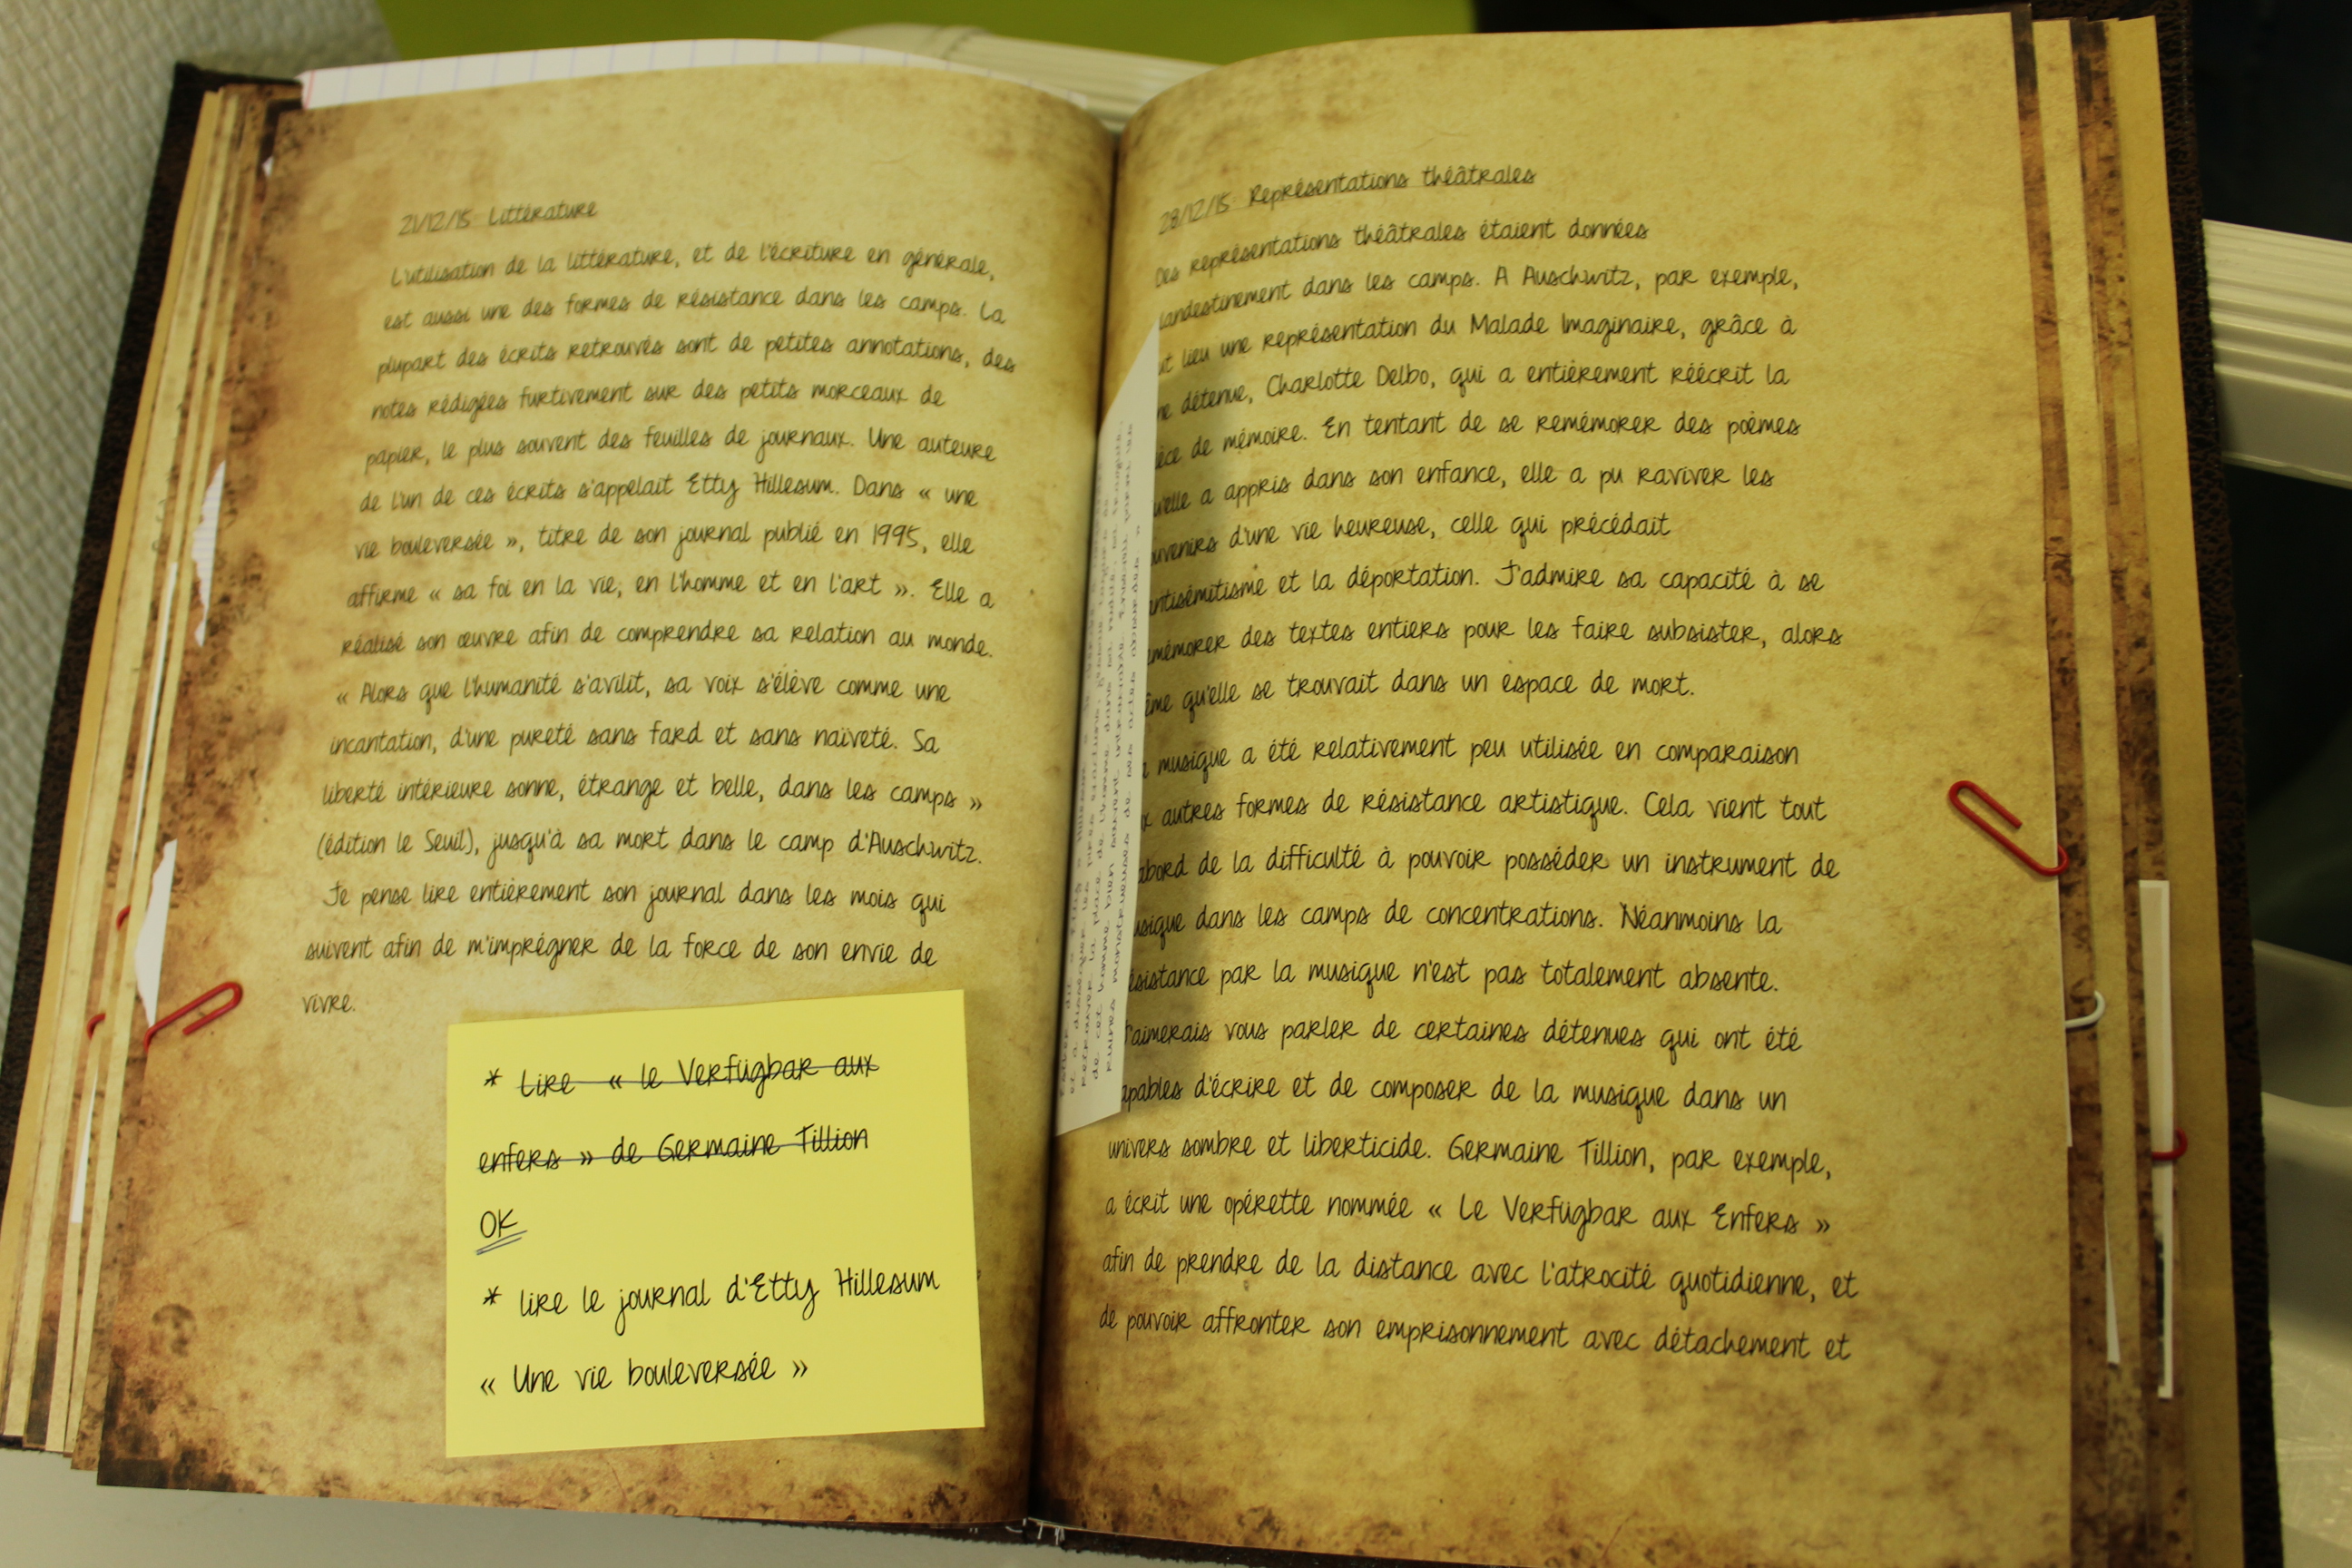 21/12/15 Littérature
L'utilisation de la littérature, et de l'écriture en générale,
est aussi une des formes de résistance dans les camps. La
plupart des écrits retrouvés sont de petites annotations, des
notes rédigées furtivement sur des petits morceaux de
papier, le plus souvent des feuilles de journaux. Une auteure
de l'un de ces écrits s'appelait Etty Hillesum. Dans « une
vie bouleversée », titre de son journal publié en 1995, elle
affirme « sa foi en la vie, en l'homme et en l'art ». Elle a
réalisé son œuvre afin de comprendre sa relation au monde.
« Alors que l'humanité s'avilit, sa voix s'élève comme une
incantation, d'une pureté sans fard et sans naïveté. Sa
liberté intérieure sonne, étrange et belle, dans les camps »
(édition le Seuil), jusqu'à sa mort dans le camp d'Auschwitz.
Je pense lire entièrement son journal dans les mois qui
suivent afin de m'imprégner de la force de son envie de
vivre.
* Lire « le Verfügbar aux
enfers » de Germaine Tillion
OK
* lire le journal d'Etty Hillesum
« Une vie bouleversée »
28/12/15 Représentations théâtrales
Des représentations théâtrales étaient données
landestinement dans les camps. A Auschwitz, par exemple,
ut lieu une représentation du Malade Imaginaire, grâce à
ne détenue, Charlotte Delbo, qui a entièrement réécrit la
ièce de mémoire. En tentant de se remémorer des poèmes
u'elle a appris dans son enfance, elle a pu raviver les
ouvenirs d'une vie heureuse, celle qui précédait
antisémitisme et la déportation. J'admire sa capacité à se
emémorer des textes entiers pour les faire subsister, alors
ême qu'elle se trouvait dans un espace de mort.
musique a été relativement peu utilisée en comparaison
x autres formes de résistance artistique. Cela vient tout
abord de la difficulté à pouvoir posséder un instrument de
usique dans les camps de concentrations. Néanmoins la
ésistance par la musique n'est pas totalement absente.
J'aimerais vous parler de certaines détenues qui ont été
apables d'écrire et de composer de la musique dans un
univers sombre et liberticide. Germaine Tillion, par exemple,
a écrit une opérette nommée « Le Verfügbar aux Enfers »
afin de prendre de la distance avec l'atrocité quotidienne, et
de pouvoir affronter son emprisonnement avec détachement et